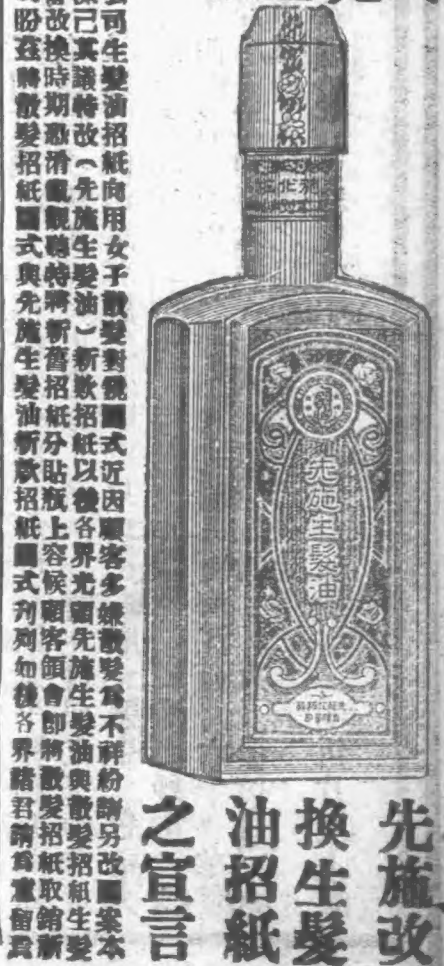 先施改
換生髮
油招紙
之宣言
先施生髮油
司生髮油招紙向用女子散髮對鏡圖式近因顧客多嫌散髮爲不祥紛請另改圖案本
已其議特改（先施生髮油）新欵招紙以後各界光顧先施生髮油與散髮招紙生髮
改換時期恐淆亂觀聽特將新舊招紙分貼瓶上容候顧客領會即將散髮招紙取銷所
盼茲將散髮招紙圖式與先施生髮油新欵招紙圖式列如後各界諸君請爲留